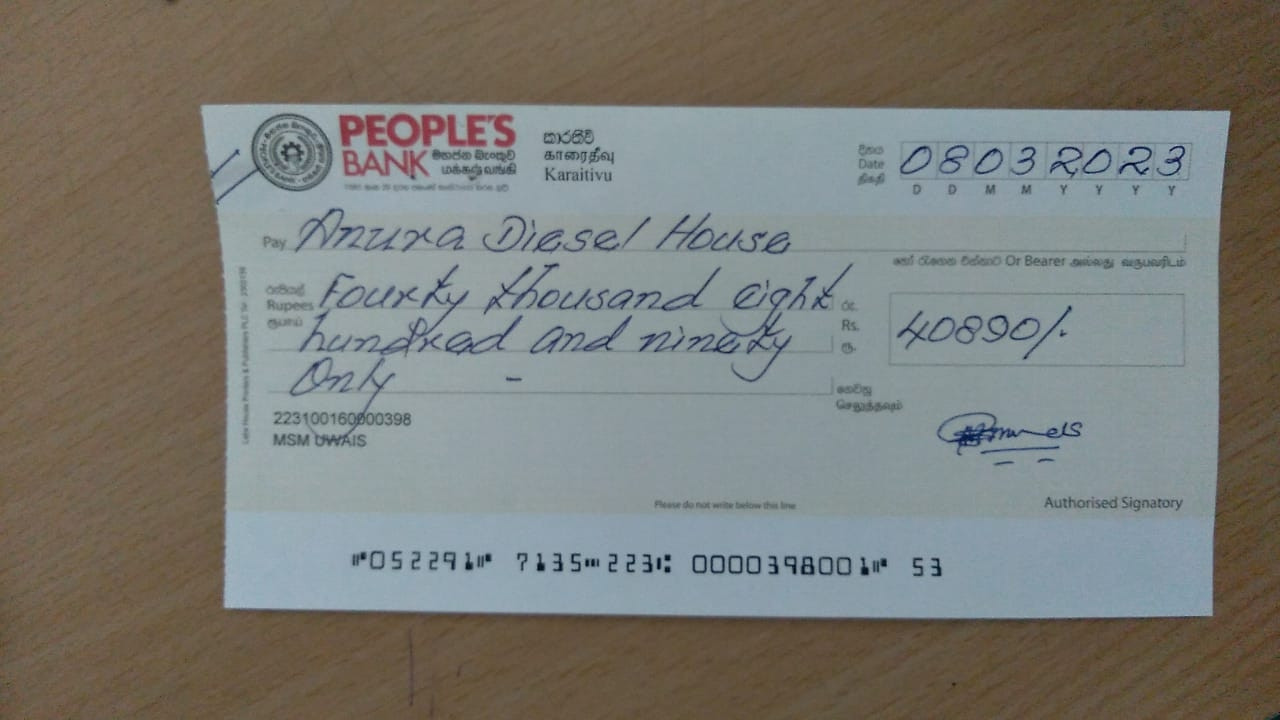 PEOPLE'S
BANK මහජන බැංකුව
மக்கள் வங்கி
කාරතිව්
காரைதீவு
Karaitivu
දිනය
Date
திகதி
08032023
D D M M Y Y Y Y
Pay Anura Diesel House
හෝ රැගෙන එන්නාට Or Bearer அல்லது வருபவரிடம்
රුපියල්
Rupees
ரூபாய்
Fourty thousand eight
hundred and ninety
Only -
රු.
Rs.
ரூ.
40890/-
ගෙවනු
செலுத்தவும்
223100160000398
MSM UWAIS
Please do not write below this line
Authorised Signatory
⑈052291⑈ 7135⑉223⑆ 0000398001⑈ 53